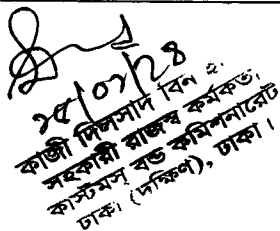 কাজী দিলসাদ বিন
সহকারী রাজস্ব কর্মকর্তা
কাস্টমস্ বন্ড কমিশনারেট
ঢাকা (দক্ষিণ), ঢাকা।